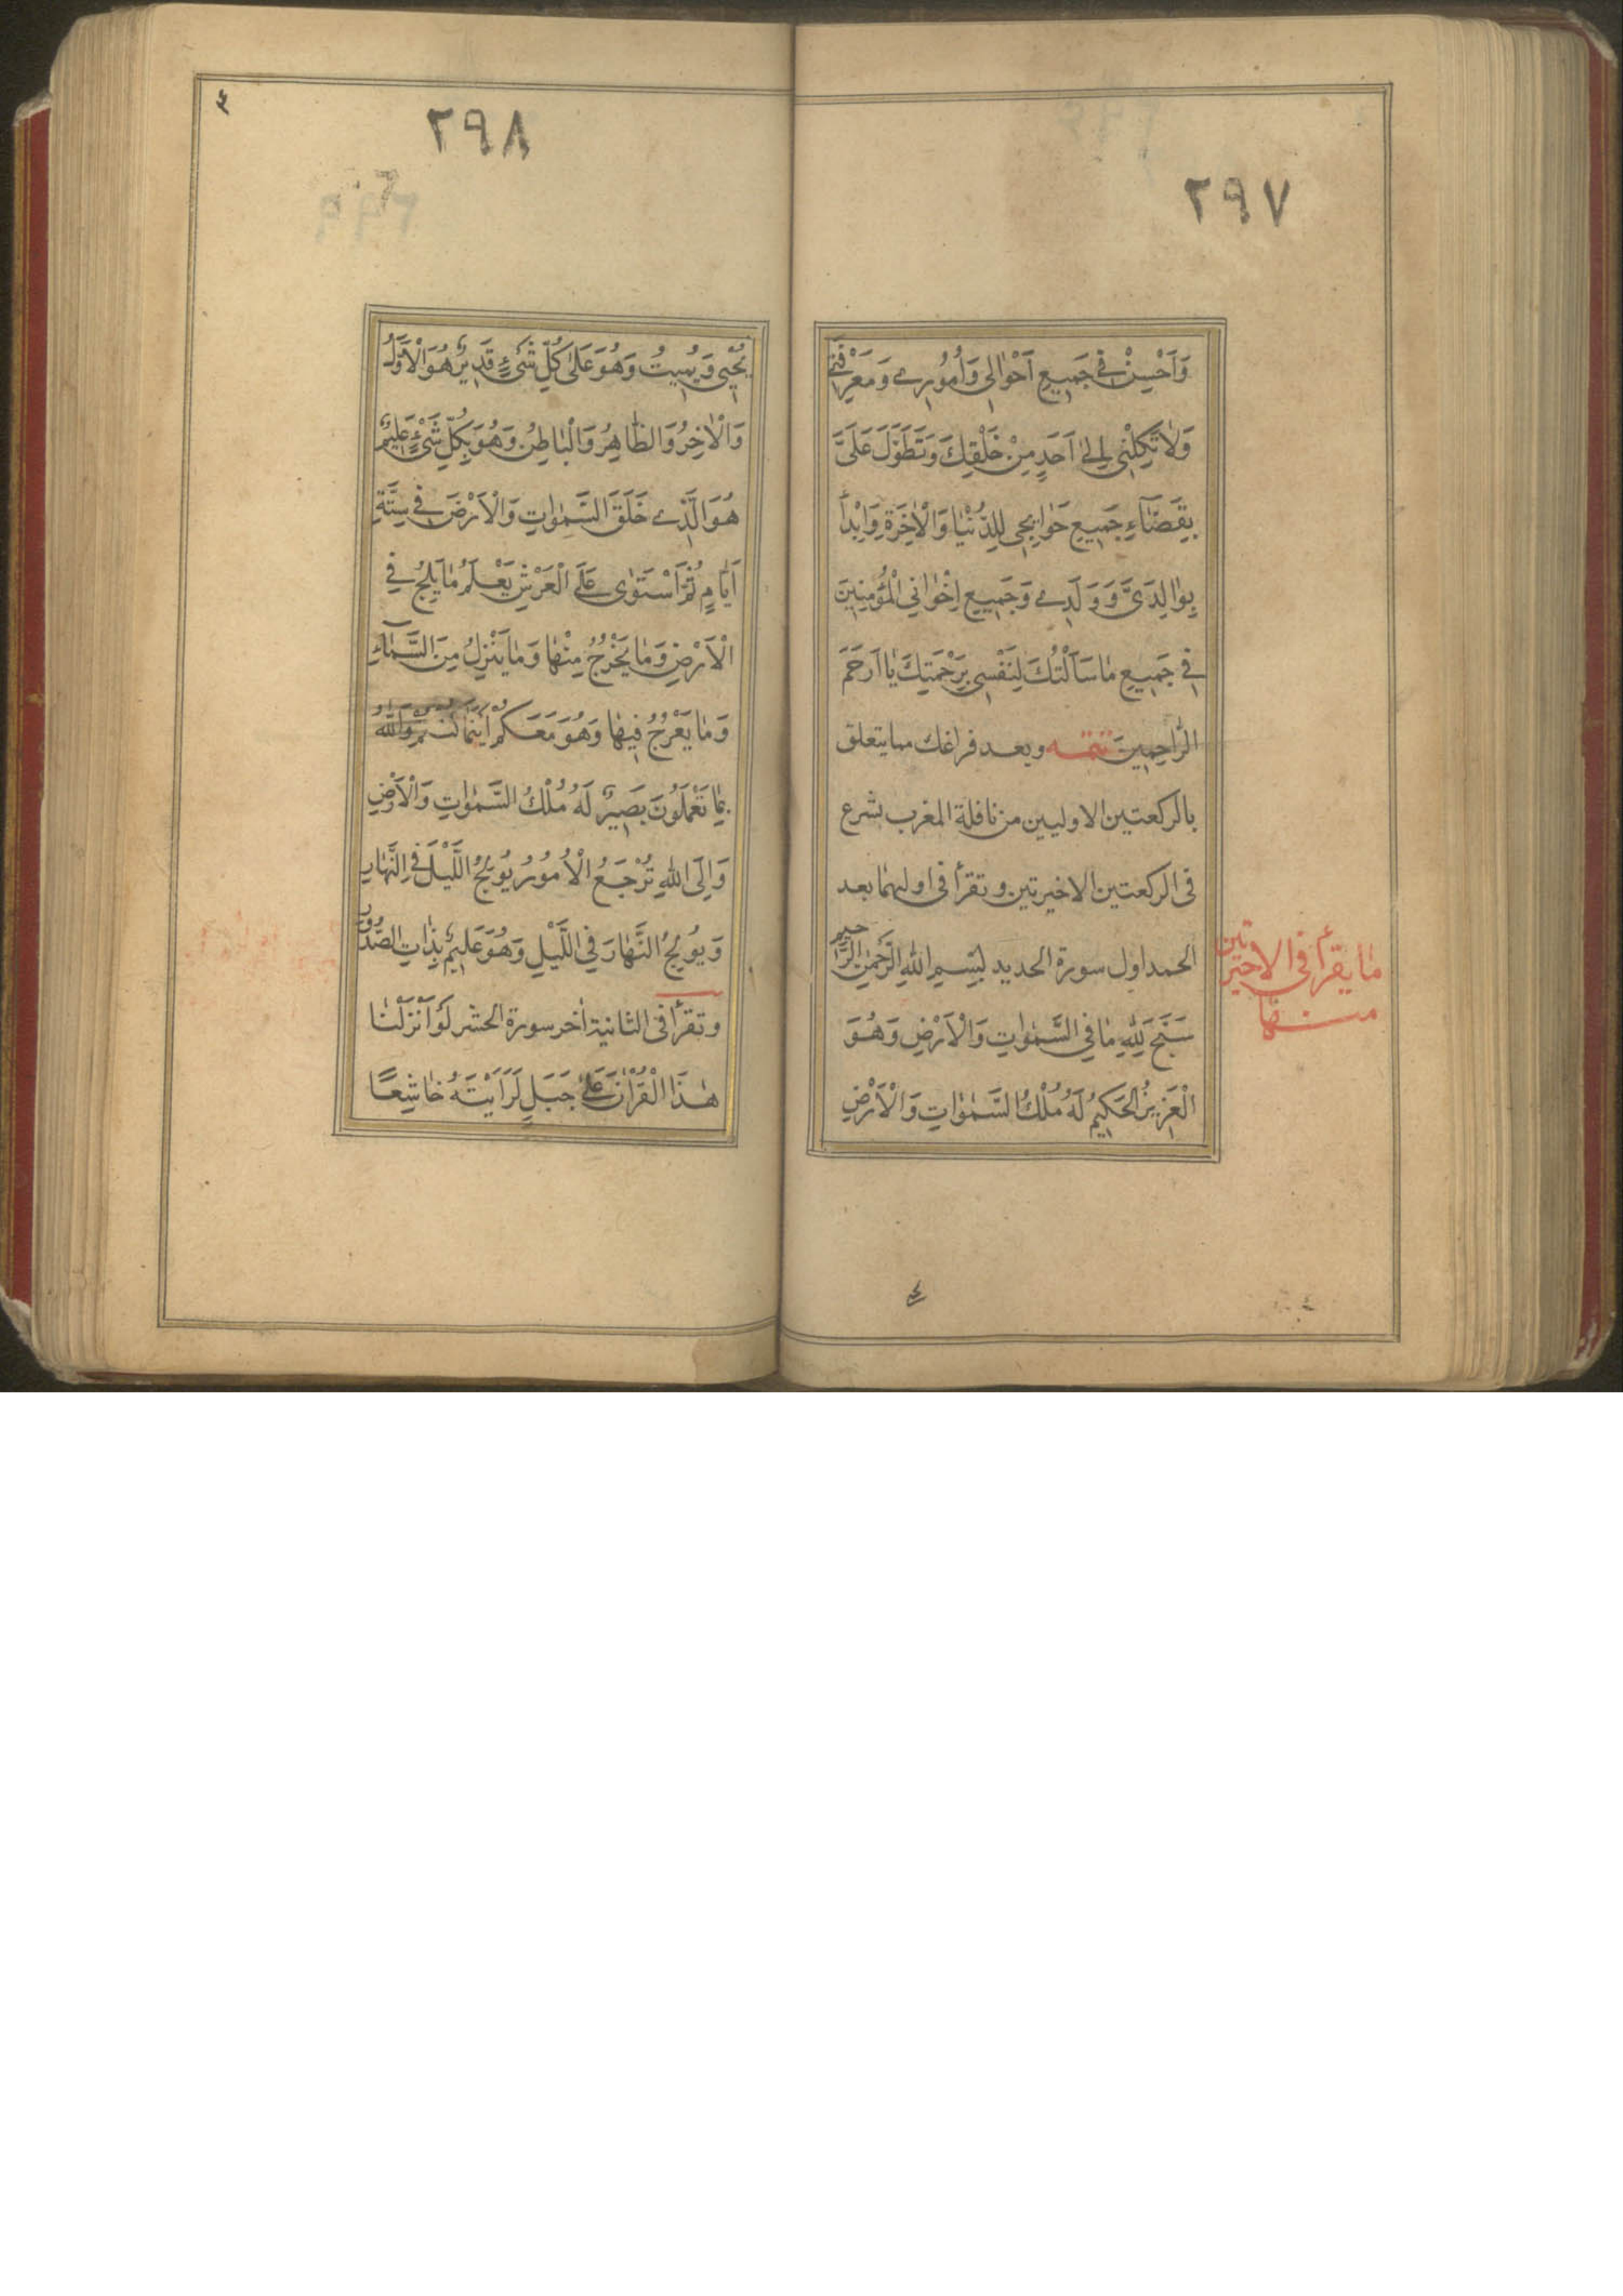 ٢٩٧
وَاَحْسِنْ فِي جَمِيعِ اَحْوٰالِي وَاُمُورِي وَمَعْرِفَتِي
وَلاٰ تَكِلْنِي اِلىٰ اَحَدٍ مِنْ خَلْقِكَ وَتَطَوَّلَ عَلَىَّ
بِقَضٰٓاءِ جَمِيعِ حَوٰايِجِي لِلدُّنْيٰا وَالْاٰخِرَةِ وَابْدَأْ
بِوٰالِدَىَّ وَ وَلَدِي وَجَمِيعِ اِخْوٰانِي الْمُؤْمِنِينَ
فِي جَمِيعِ مٰا سَاَلْتُكَ لِنَفْسِي بِرَحْمَتِكَ يٰا اَرْحَمَ
الرّٰاحِمِينَ تتمه وبعد فراغك مما يتعلق
بالركعتين الاوليين من نافلة المغرب تشرع
فى الركعتين الاخيرتين وتقرأ فى اوليهما بعد
الحمد اول سورة الحديد بِسْمِ اللّٰهِ الرَّحْمٰنِ الرَّحيم
سَبَّحَ لِلّٰهِ مٰا فِي السَّمٰوٰاتِ وَالْاَرْضِ وَهُوَ
الْعَزِيزُ الْحَكِيمُ لَهُ مُلْكُ السَّمٰوٰاتِ وَالْاَرْضِ
مٰا يقرأ فى الاخيرتين
منها
٢٩٨
يُحْيِي وَيُمِيتُ وَهُوَ عَلىٰ كُلِّ شَىْءٍ قَدِيرٌ هُوَ الْاَوَّلُ
وَالْاٰخِرُ وَالظّٰاهِرُ وَالْبٰاطِنُ وَهُوَ بِكُلِّ شَىْءٍ عَلِيمٌ
هُوَ الَّذِي خَلَقَ السَّمٰوٰاتِ وَالْاَرْضَ فِي سِتَّةِ
اَيّٰامٍ ثُمَّ اسْتَوٰى عَلَى الْعَرْشِ يَعْلَمُ مٰا يَلِجُ فِي
الْاَرْضِ وَمٰا يَخْرُجُ مِنْهٰا وَمٰا يَنْزِلُ مِنَ السَّمٰاءِ
وَمٰا يَعْرُجُ فِيهٰا وَهُوَ مَعَكُمْ اَيْنَمٰا كُنْتُمْ وَاللّٰهُ
بِمٰا تَعْمَلُونَ بَصِيرٌ لَهُ مُلْكُ السَّمٰوٰاتِ وَالْاَرْضِ
وَاِلَى اللّٰهِ تُرْجَعُ الْاُمُورُ يُولِجُ اللَّيْلَ فِي النَّهٰارِ
وَيُولِجُ النَّهٰارَ فِي اللَّيْلِ وَهُوَ عَلِيمٌ بِذٰاتِ الصُّدُورِ
وتقرأ فى الثانية اٰخر سورة الحشر لَوْ اَنْزَلْنٰا
هٰذَا الْقُرْاٰنَ عَلىٰ جَبَلٍ لَرَاَيْتَهُ خٰاشِعًا